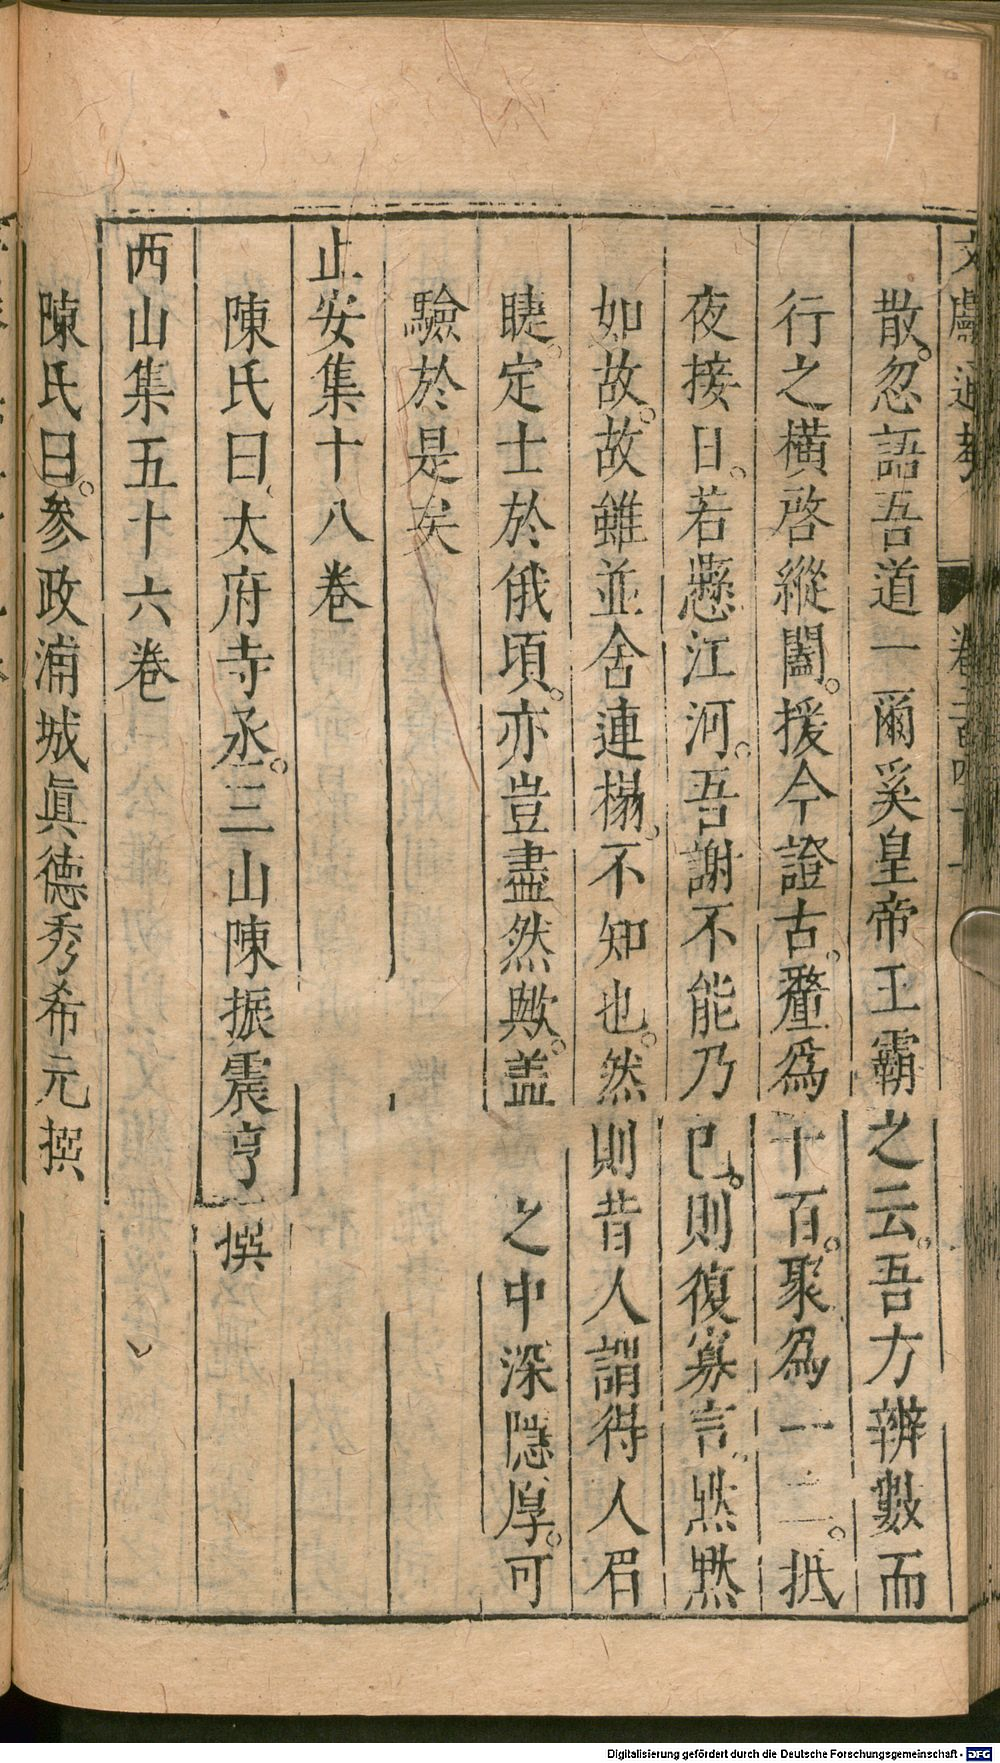 文獻通考 卷二百四十一
散忽語吾道一爾奚皇帝王霸之云吾方辨數而
行之橫啓縱闔援今證古釐爲十百聚爲一二抵
夜接日若懸江河吾謝不能乃已則復寡言默默
如故故雖並舍連榻不知也然則昔人謂得人眉
睫定士於俄頃亦豈盡然歟盖之中深隱厚可
驗於是矣
止安集十八卷
陳氏曰太府寺丞三山陳振震亨撰
西山集五十六卷
陳氏曰參政浦城眞德秀希元撰
Digitalisierung gefördert durch die Deutsche Forschungsgemeinschaft - DFG